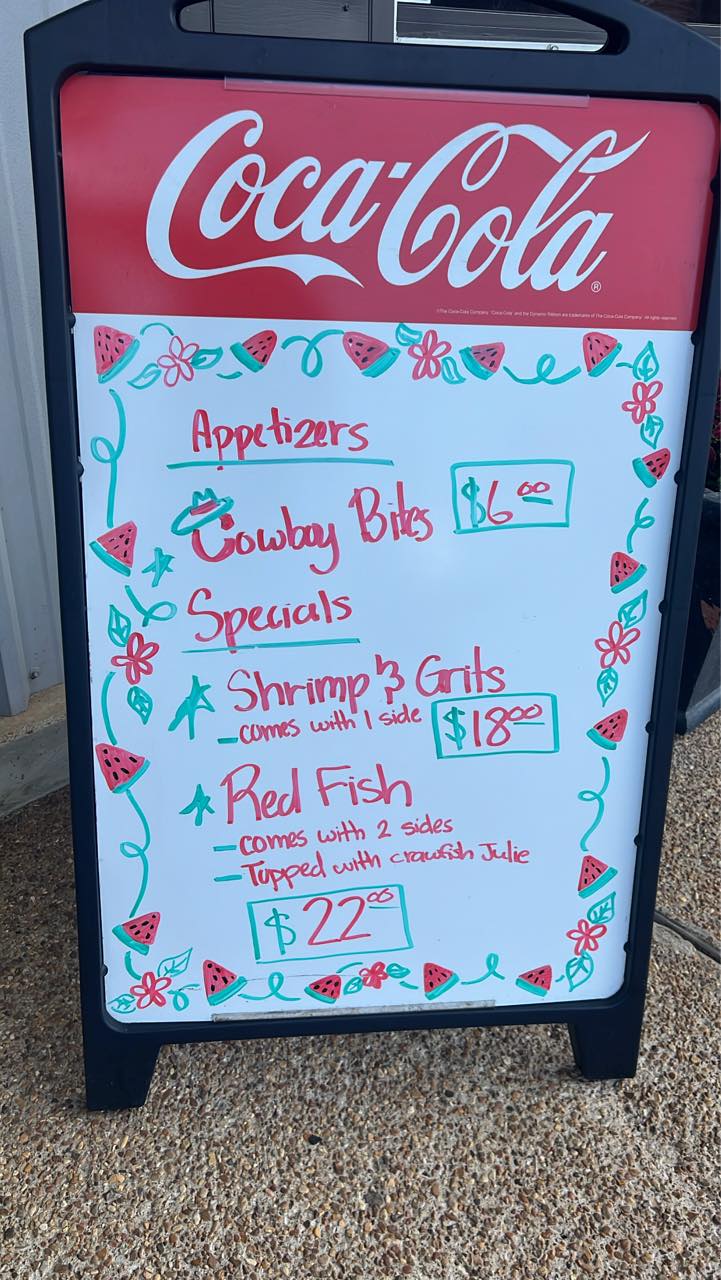 Coca-Cola®
©The Coca-Cola Company. "Coca-Cola" and the Dynamic Ribbon are trademarks of The Coca-Cola Company. All rights reserved.
Appetizers
Cowboy Bites $6.00
Specials
Shrimp & Grits
-comes with 1 side $18.00
Red Fish
-comes with 2 sides
-Topped with crawfish Julie
$22.00